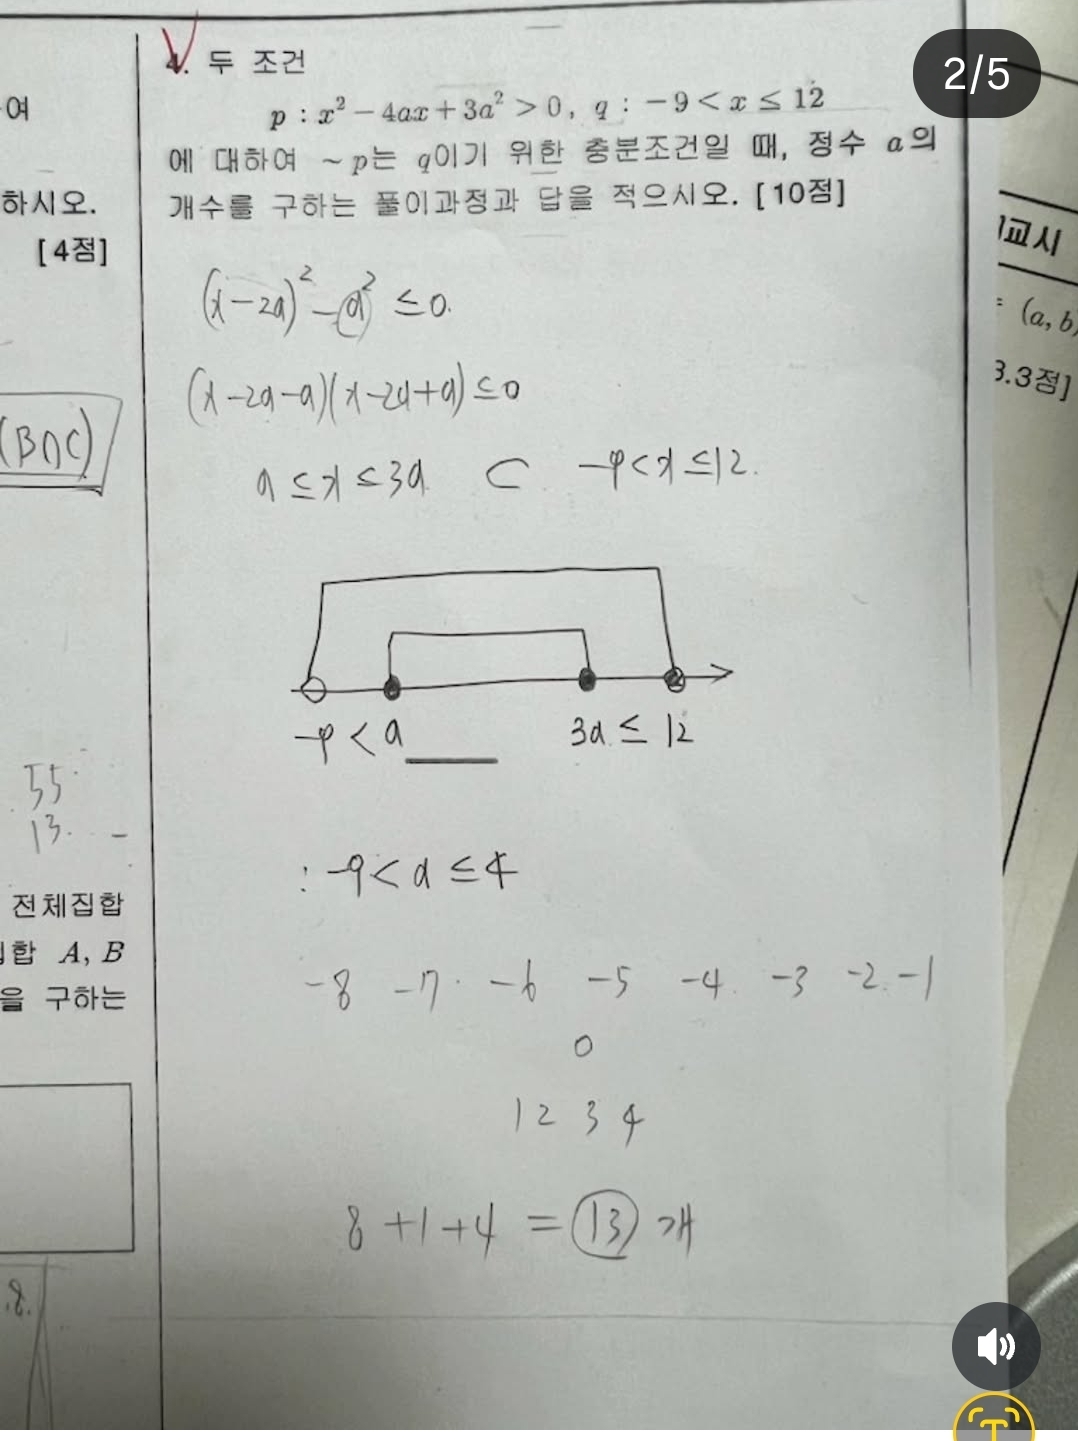 2/5
여
하시오.
[4점]
(B∩C)
55
13.
전체집합
집합 A, B
을 구하는
8.
4. 두 조건
p : x² - 4ax + 3a² > 0, q : -9 < x ≤ 12
에 대하여 ~p는 q이기 위한 충분조건일 때, 정수 a의
개수를 구하는 풀이과정과 답을 적으시오. [10점]
(x-2a)² - a² ≤ 0.
(x-2a-a)(x-2a+a) ≤ 0
a ≤ x ≤ 3a ⊂ -9 < x ≤ 12.
-9 < a 3a ≤ 12
: -9 < a ≤ 4
-8 -7 -6 -5 -4 -3 -2 -1
0
1 2 3 4
8+1+4 = 13 개
교시
= (a, b)
3.3점]